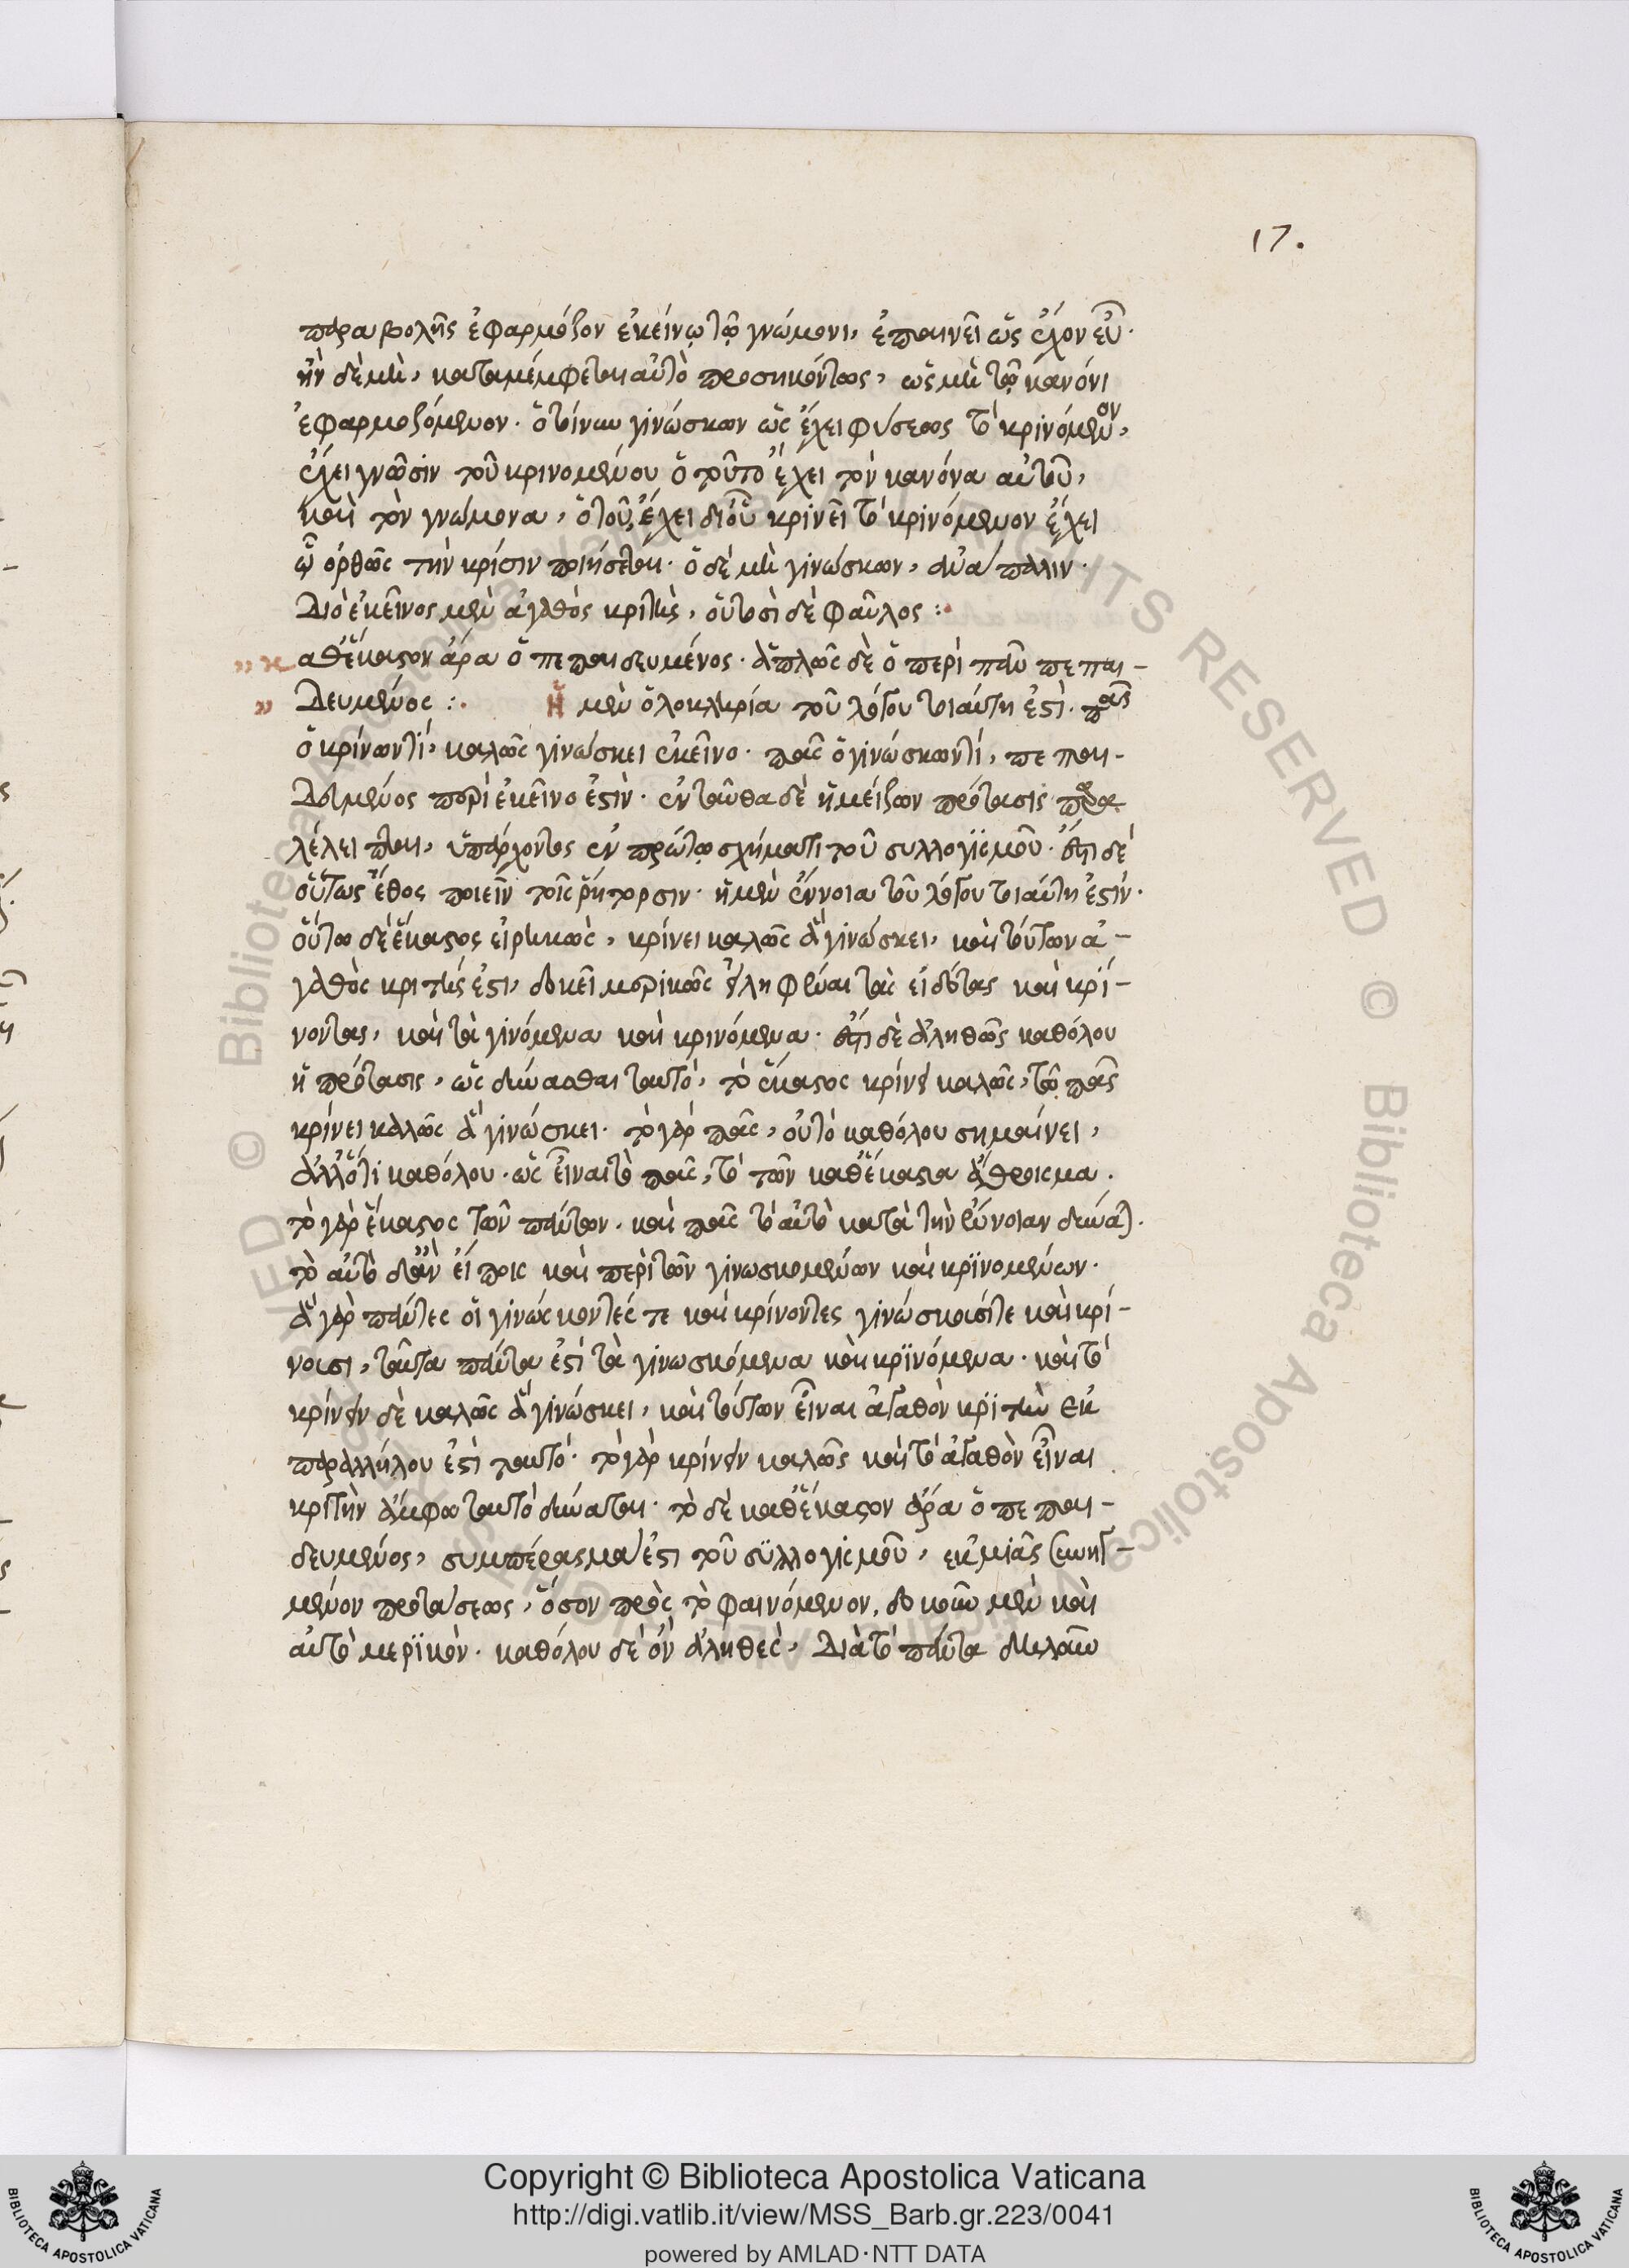 17.
παραβολῆς ἐφαρμόζον ἐκείνῳ τῷ γνώμονι, ἐπαινεῖ ὡς ἔχον εὖ.
ἢν δὲ μὴ, καταμέμφεται αὐτὸ προσηκόντως, ὡς μὴ τῷ κανόνι
ἐφαρμοζόμενον. ὁ τοίνυν γινώσκων ὡς ἔχει φύσεως τὸ κρινόμενον,
ἔχει γνῶσιν τοῦ κρινομένου ὁ τοῦτο ἔχει τὸν κανόνα αὐτοῦ,
καὶ τὸν γνώμονα, ὁ τοῦτ' ἔχει δι' οὗ κρινεῖ τὸ κρινόμενον ἔχει
ᾧ ὀρθῶς τὴν κρίσιν ποιήσεται. ὁ δὲ μὴ γινώσκων, πάλιν.
Διὸ ἐκεῖνος μὲν ἀγαθὸς κριτὴς, οὑτοσὶ δὲ φαῦλος :.
κ αθέκαστον ἄρα ὁ πεπαιδευμένος. ἁπλῶς δὲ ὁ περὶ πᾶν πεπαι-
Δευμένος :. Ἡ μὲν ὁλοκληρία τοῦ λόγου τοιαύτη ἐστὶ. πᾶς
ὁ κρίνων τί, καλῶς γινώσκει ἐκεῖνο. πᾶς ὁ γινώσκων τί, πεπαι-
Δευμένος περὶ ἐκεῖνο ἐστὶν. ἐνταῦθα δὲ ἡ μείζων πρότασις παρα
λέλειπται, ὑπάρχοντος ἐν πρώτῳ σχήματι τοῦ συλλογισμοῦ. ἔστι δὲ
οὕτως ἔθος ποιεῖν τοῖς ῥήτορσιν. ἡ μὲν ἔννοια τοῦ λόγου τοιαύτη ἐστίν.
οὕτω δὲ ἕκαστος εἰρηκὼς, κρίνει καλῶς ἃ γινώσκει, καὶ τούτων ἀ-
γαθὸς κριτής ἐστι, δοκεῖ μερικῶς εἰληφέναι τοὺς εἰδότας καὶ κρί-
νοντας, καὶ τὰ γινόμενα καὶ κρινόμενα. ἔστι δὲ ἀληθῶς καθόλου
ἡ πρότασις, ὡς δύνασθαι ταυτὸ, τὸ ἕκαστος κρίνει καλῶς, τῷ πᾶς
κρίνει καλῶς ἃ γινώσκει. τὸ γὰρ πᾶς, οὐ τὸ καθόλου σημαίνει,
ἀλλ' ὅτι καθόλου. ὡς εἶναι τὸ πᾶς, τὸ τῶν καθέκαστα ἄθροισμα.
τὸ γὰρ ἕκαστος τῶν πάντων. καὶ πᾶς τὸ αὐτὸ κατὰ τὴν ἔννοιαν δύναται.
τὸ αὐτὸ δ' ἂν εἴποις καὶ περὶ τῶν γινωσκομένων καὶ κρινομένων.
ἃ γὰρ πάντες οἱ γινώσκοντές τε καὶ κρίνοντες γινώσκουσί τε καὶ κρί-
νουσι, ταῦτα πάντα ἐστὶ τὰ γινωσκόμενα καὶ κρϊνόμενα. καὶ τὸ
κρίνειν δὲ καλῶς ἃ γινώσκει, καὶ τούτων εἶναι ἀγαθὸν κρϊτὴν ἐκ
παραλλήλου ἐστὶ ταυτό. τὸ γὰρ κρίνειν καλῶς καὶ τὸ ἀγαθὸν εἶναι
κρϊτὴν ἄμφω ταυτὸ δύναται. τὸ δὲ καθέκαστον ἄρα ὁ πεπαι-
δευμένος, συμπέρασμα ἐστι τοῦ σϋλλογισμοῦ, ἐκ μιᾶς συνηγ-
μένον προτάσεως, ὅσον πρὸς τὸ φαινόμενον, δοκοῦν μὲν καὶ
αὐτὸ μερϊκὸν. καθόλου δὲ ὂν ἀληθὲς, Διὰ τὸ πάντα
Copyright © Biblioteca Apostolica Vaticana
http://digi.vatlib.it/view/MSS_Barb.gr.223/0041
powered by AMLAD·NTT DATA